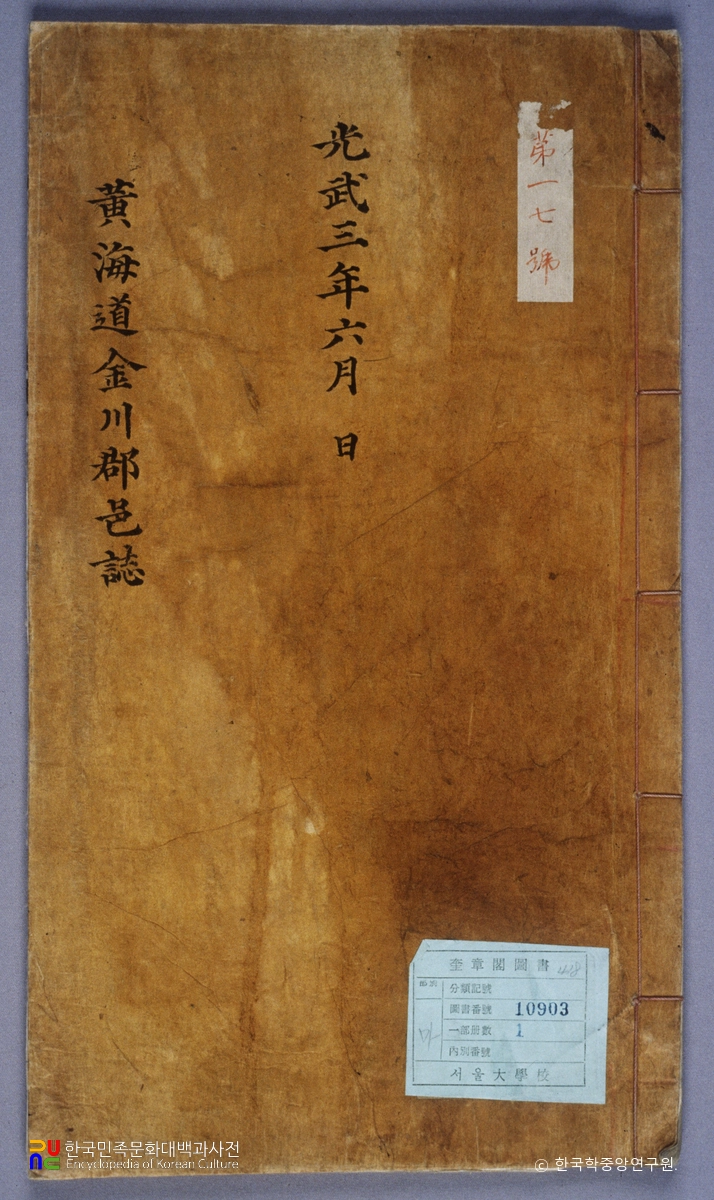 第一七號
光武三年六月 日
黃海道金川郡邑誌
奎章閣圖書
分類記號
圖書番號 10903
一部册數 1
內別番號
서울大學校
한국민족문화대백과사전
Encyclopedia of Korean Culture
© 한국학중앙연구원.